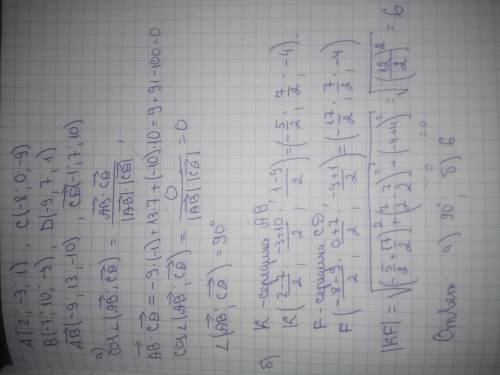 A(2; -3; 1), C(-8; 0; -9)
B(-7; 10; -9), D(-9; 7; 1)
AB(-9; 13; -10), CD(-1; 7; 10)
а) cos∠(AB; CD) = AB·CD / |AB|·|CD|;
AB·CD = -9·(-1)+13·7+(-10)·10 = 9+91-100=0
cos∠(AB; CD) = 0 / |AB||CD| = 0
∠(AB; CD) = 90°
б) K - середина AB,
K(2-7/2; -3+10/2; 1-9/2) = (-5/2; 7/2; -4).
F - середина CD,
F(-8-9/2; 0+7/2; -9+1/2) = (-17/2; 7/2; -4)
|KF| = √((-5/2+17/2)²+(7/2-7/2)²+(-4+4)²) = √((12/2)²) = 6
=0 =0
Ответ: а) 90°, б) 6